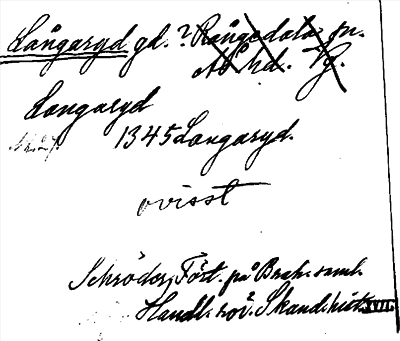 Långaryd gd. ? Rångedala sn.
Ås hd. Vg.
Langaryd
1345 Langaryd.
ovisst
Schröder, Fört. på Brah. saml.
Handl. rör. Skand. hist. XVII.